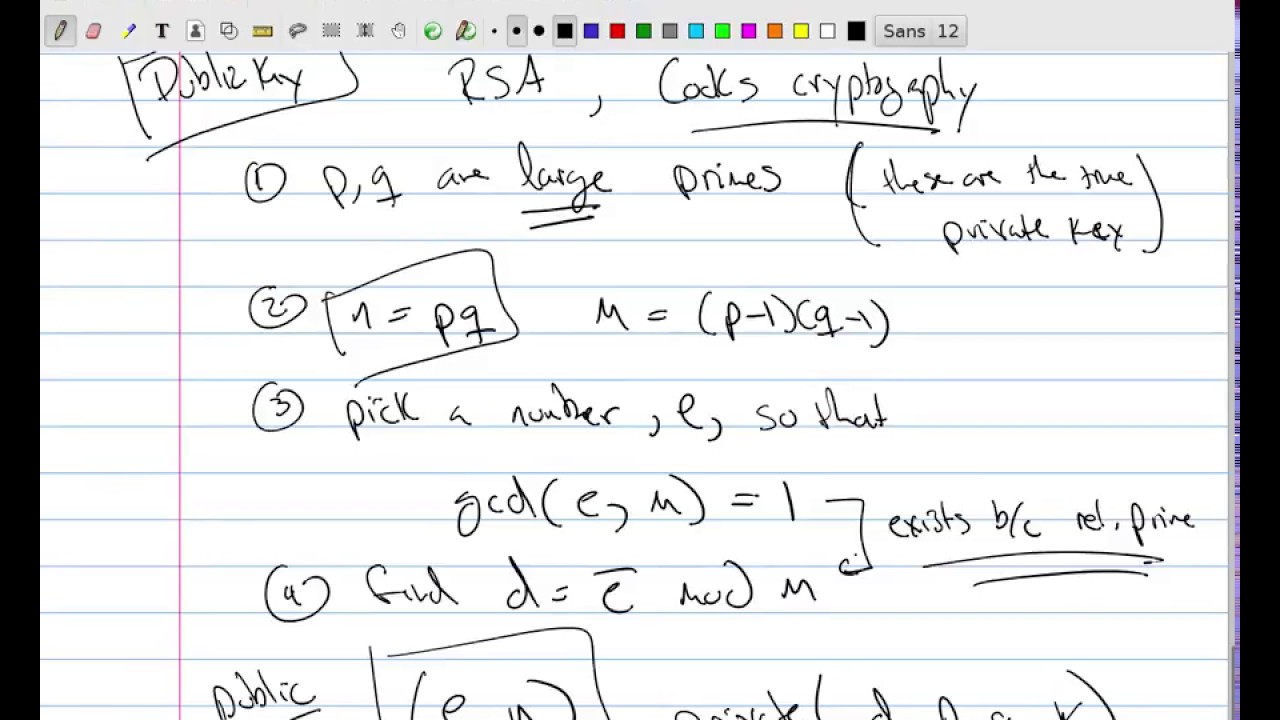 Sans 12
Public Key RSA, Cocks cryptography
① p,q are large primes (these are the true private key)
② n = pq m = (p-1)(q-1)
③ pick a number, e, so that
gcd(e, m) = 1 exists b/c rel. prime
④ find d = e̅ mod m
Public (e, n) private(d, p, q,